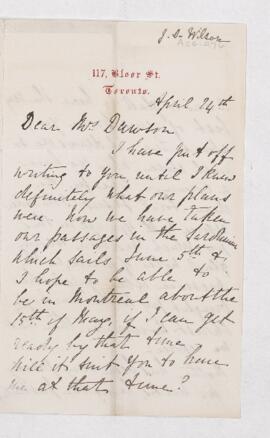 J. D. Wilson
117, Bloor St.
Toronto.
April 24th
Dear Mrs Dawson
I have put off
writing to you until I knew
definitely what our plans
were. Now we have taken
our passages in the Sardinian
which sails June 5th &
I hope to be able to
be in Montreal about the
15th of May, if I can get
ready by that time
Will it suit you to have
me at that time?